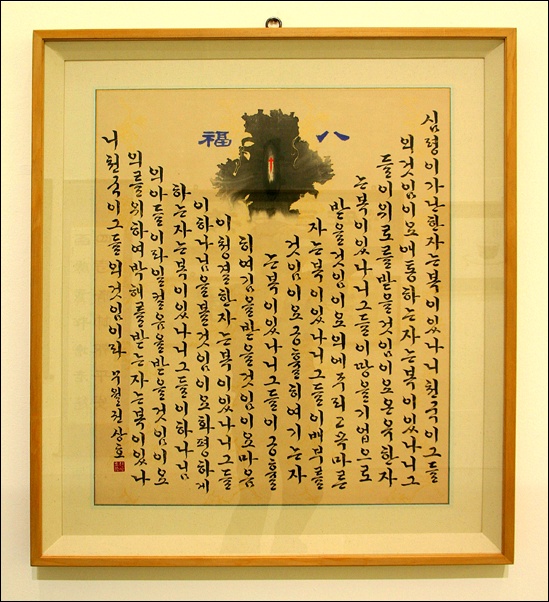 八福
심령이가난한자는복이있나니천국이그들
의것임이요애통하는자는복이있나니그
들이위로를받을것임이요온유한자
는복이있나니그들이땅을기업으로
받을것임이요의에주리고목마른
자는복이있나니그들이배부를
것임이요긍휼히여기는자
는복이있나니그들이긍휼
히여김을받을것임이요마음
이청결한자는복이있나니그들
이하나님을볼것임이요화평하게
하는자는복이있나니그들이하나님
의아들이라일컬음을받을것임이요
의를위하여박해를받는자는복이있나
니천국이그들의것임이라